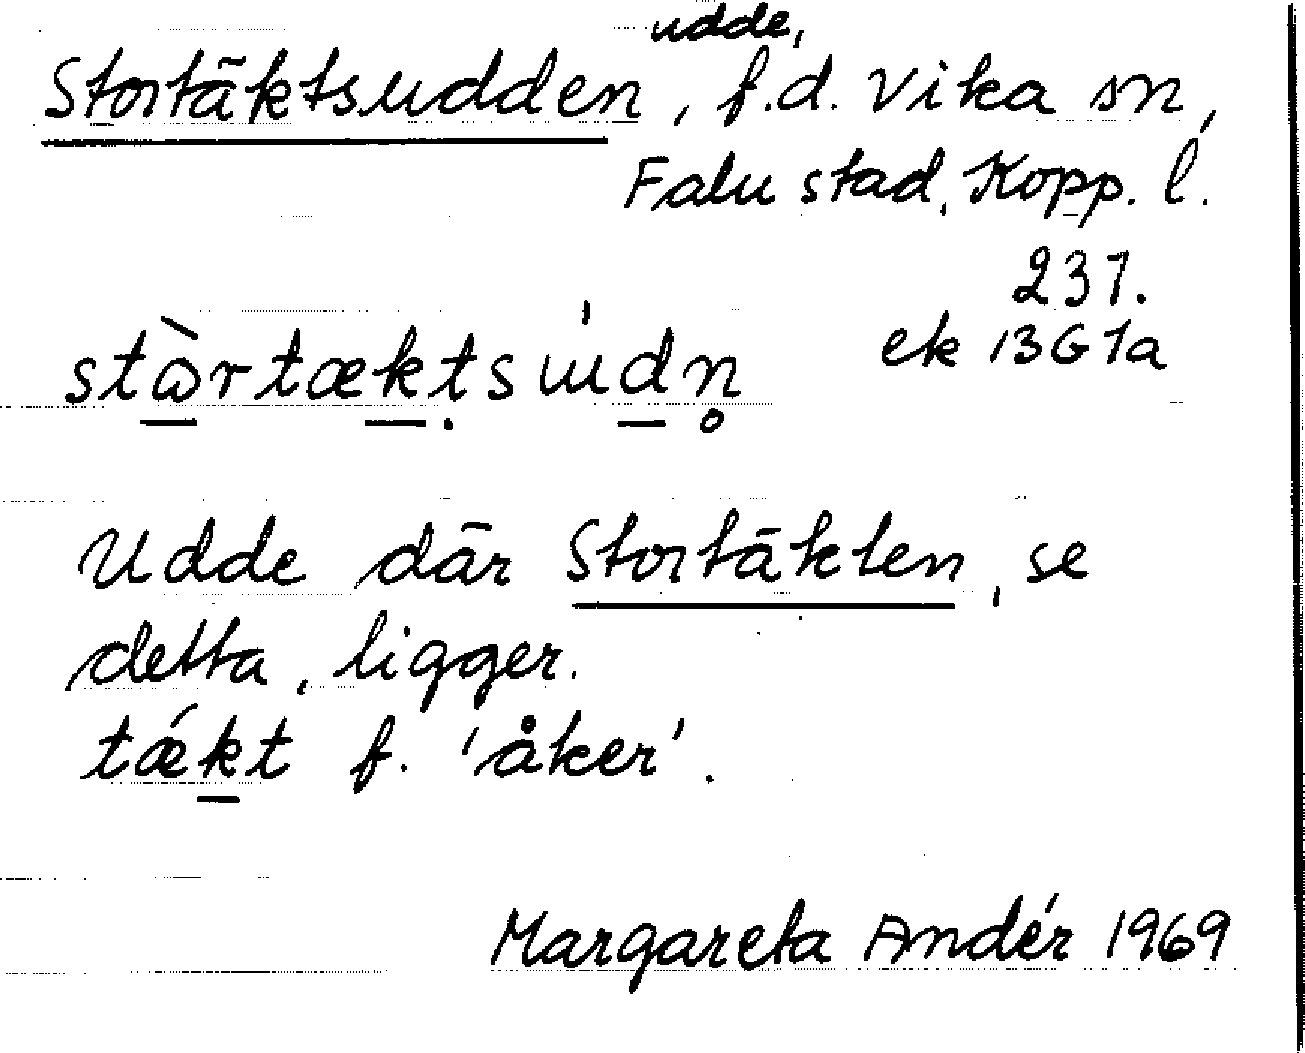 Stortäktsudden, udde, f.d. Vika sn,
Falu stad, Kopp. l.
237.
ek 13G 1a
stɷ̀rtæktsɯ́dn̥
Udde där Stortäkten, se
detta, ligger.
tǽkt f. 'åker'.
Margareta Andér 1969